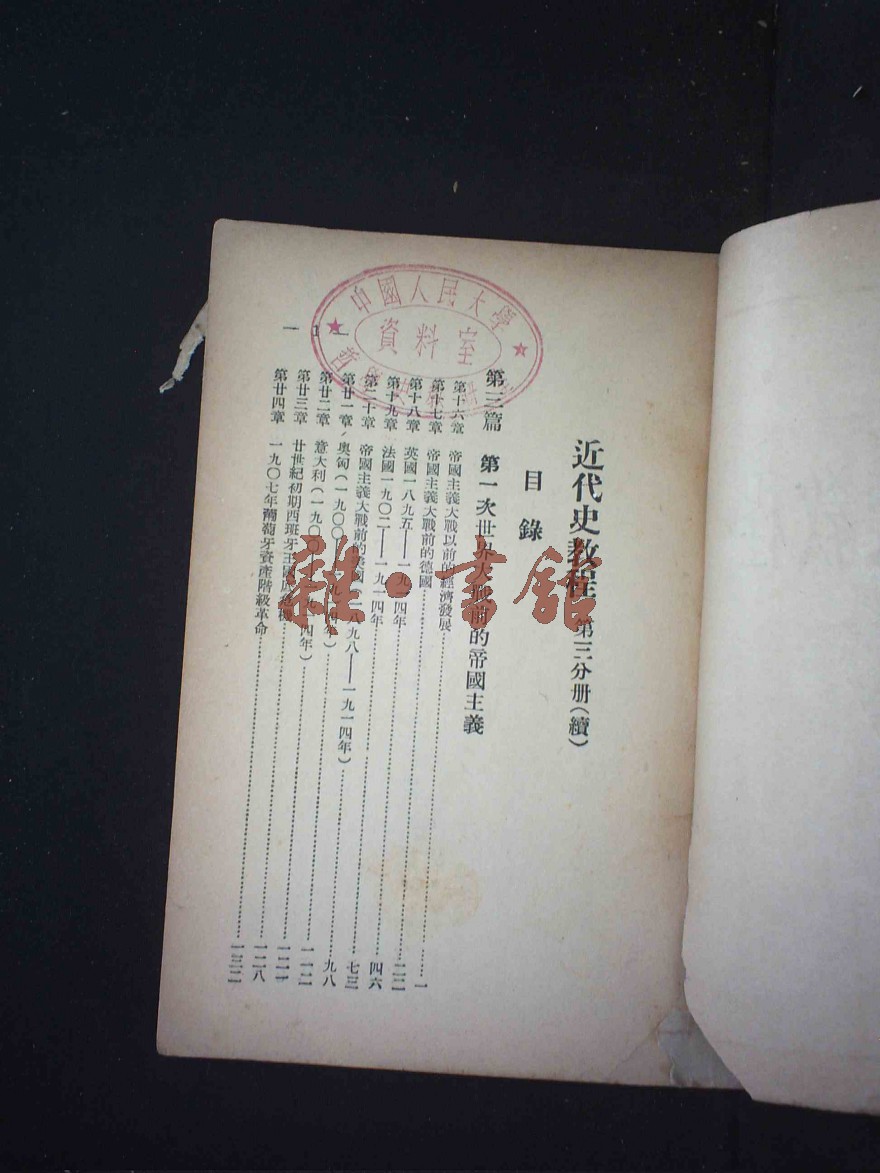 近代史教程 第三分册(續)
目錄
第三篇 第一次世界大戰前的帝國主義
第十六章 帝國主義大戰以前的經濟發展……一
第十七章 帝國主義大戰前的德國……二二
第十八章 英國一八九五——一九一四年……四六
第十九章 法國一九〇二——一九一四年……七三
第二十章 帝國主義大戰前的 國(一八九八——一九一四年)……九八
第廿一章 奧匈(一九〇〇——一九一四年)……一一二
第廿二章 意大利(一九〇〇——一九一四年)……一二一
第廿三章 廿世紀初期西班牙王國底危機……一二八
第廿四章 一九〇七年葡萄牙資產階級革命……一三二
— 1 —
中國人民大學
資料室
雜·書館